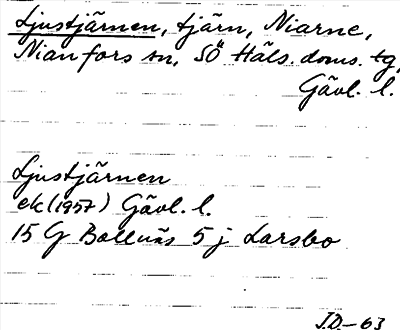 Ljustjärnen, tjärn, Niarne,
Nianfors sn, SÖ Häls. doms. tg,
Gävl. l.
Ljustjärnen
ek (1957) Gävl. l.
15 G Bollnäs 5 j Larsbo
J.D. - 63